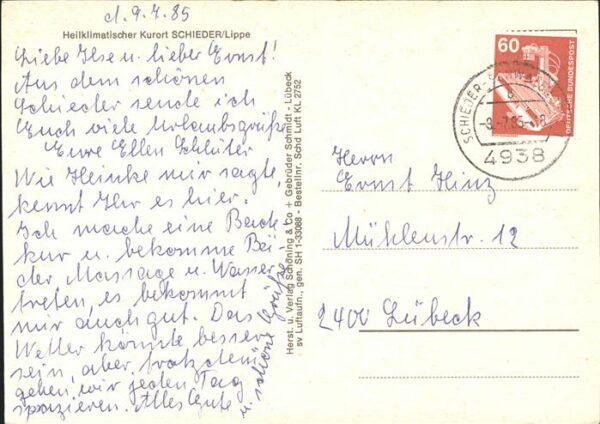 d. 9.7.85
Heilklimatischer Kurort SCHIEDER/Lippe
Liebe Ilse u. lieber Ernst!
Aus dem schönen
Schieder sende ich
Euch viele Urlaubsgrüße
Eure Ellen Schlüter
Wie Heinke mir sagte,
kennt Ihr es hier.
Ich mache eine Bade
kur u. bekomme Bä
der Massage u. Wasser
treten, es bekommt
mir auch gut. Das
Wetter könnte besser
sein, aber trotzdem
gehen wir jeden Tag
spazieren. Alles Gute
u. schöne Grüße
Herst. u. Verlag Schöning & Co + Gebrüder Schmidt - Lübeck
sv Luftaufn., gen. SH 1-33088 - Bestellnr. Schd Luft KL 2752
60
DEUTSCHE BUNDESPOST
SCHIEDER-
-9.-7.85-
4938
Herrn
Ernst Hinz
Mühlenstr. 12
2400 Lübeck